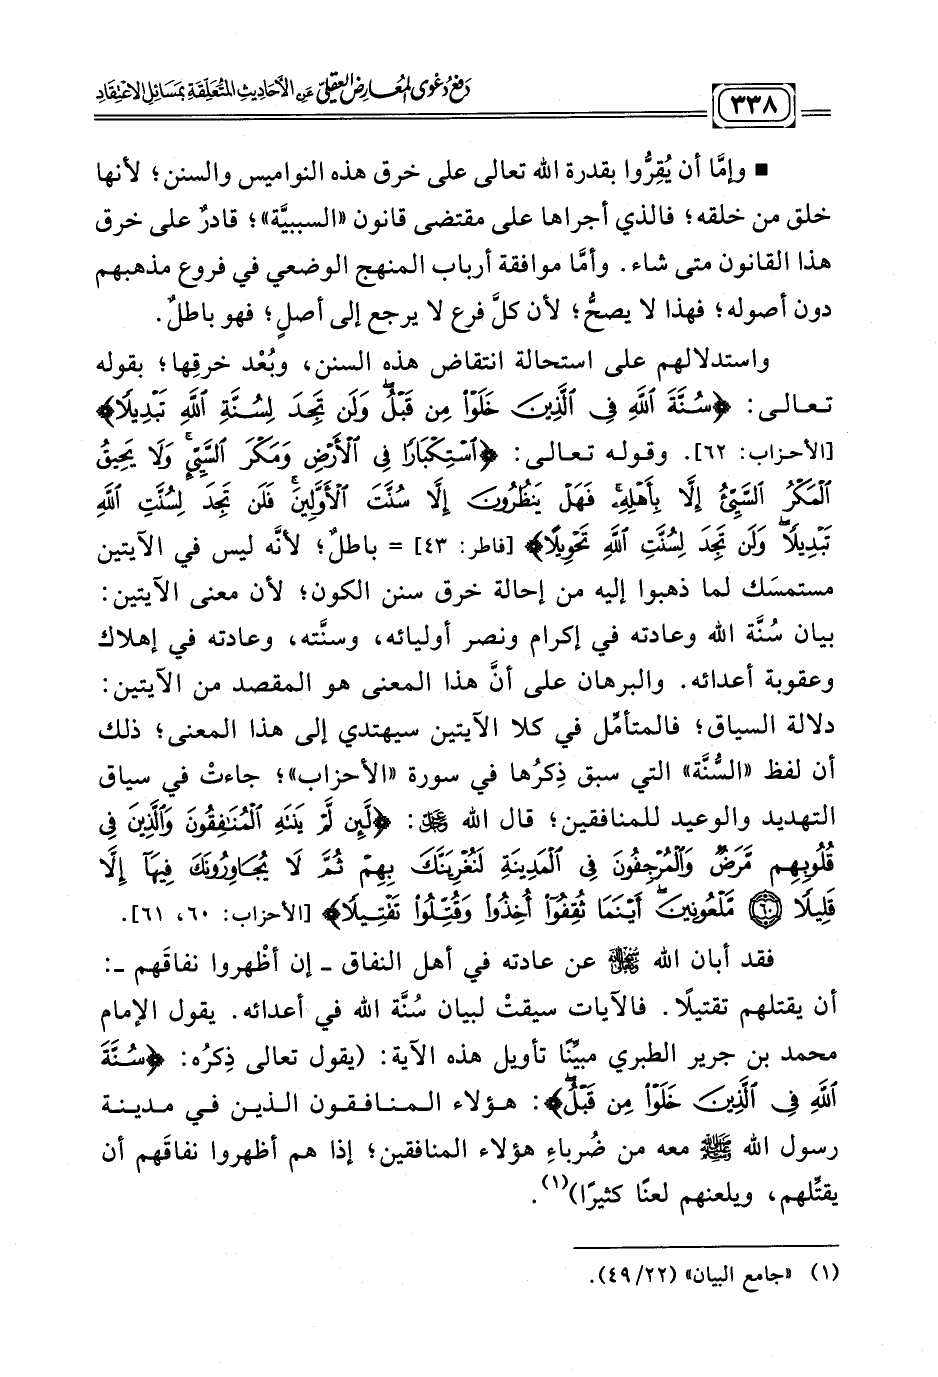 دفع دعوى المعارض العقلي عن الأحاديث المتعلقة بمسائل الاعتقاد
٣٣٨
■ وإمَّا أن يُقِرُّوا بقدرة الله تعالى على خرق هذه النواميس والسنن؛ لأنها
خلق من خلقه؛ فالذي أجراها على مقتضى قانون «السببيَّة»؛ قادرٌ على خرق
هذا القانون متى شاء. وأمَّا موافقة أرباب المنهج الوضعي في فروع مذهبهم
دون أصوله؛ فهذا لا يصحُّ؛ لأن كلَّ فرع لا يرجع إلى أصلٍ؛ فهو باطلٌ.
واستدلالهم على استحالة انتقاض هذه السنن، وبُعْد خرقِها؛ بقوله
تعالى: ﴿سُنَّةَ اللَّهِ فِي الَّذِينَ خَلَوْا مِن قَبْلُ ۖ وَلَن تَجِدَ لِسُنَّةِ اللَّهِ تَبْدِيلًا﴾
[الأحزاب: ٦٢]. وقوله تعالى: ﴿اسْتِكْبَارًا فِي الْأَرْضِ وَمَكْرَ السَّيِّئِ ۚ وَلَا يَحِيقُ
الْمَكْرُ السَّيِّئُ إِلَّا بِأَهْلِهِ ۚ فَهَلْ يَنظُرُونَ إِلَّا سُنَّتَ الْأَوَّلِينَ ۚ فَلَن تَجِدَ لِسُنَّتِ اللَّهِ
تَبْدِيلًا ۖ وَلَن تَجِدَ لِسُنَّتِ اللَّهِ تَحْوِيلًا﴾ [فاطر: ٤٣] = باطلٌ؛ لأنَّه ليس في الآيتين
مستمسَك لما ذهبوا إليه من إحالة خرق سنن الكون؛ لأن معنى الآيتين:
بيان سُنَّة الله وعادته في إكرام ونصر أوليائه، وسنَّته، وعادته في إهلاك
وعقوبة أعدائه. والبرهان على أنَّ هذا المعنى هو المقصد من الآيتين:
دلالة السياق؛ فالمتأمِّل في كلا الآيتين سيهتدي إلى هذا المعنى؛ ذلك
أن لفظ «السُّنَّة» التي سبق ذِكرُها في سورة «الأحزاب»؛ جاءتْ في سياق
التهديد والوعيد للمنافقين؛ قال الله ﷻ: ﴿لَّئِن لَّمْ يَنتَهِ الْمُنَافِقُونَ وَالَّذِينَ فِي
قُلُوبِهِم مَّرَضٌ وَالْمُرْجِفُونَ فِي الْمَدِينَةِ لَنُغْرِيَنَّكَ بِهِمْ ثُمَّ لَا يُجَاوِرُونَكَ فِيهَا إِلَّا
قَلِيلًا ۝٦٠ مَّلْعُونِينَ ۖ أَيْنَمَا ثُقِفُوا أُخِذُوا وَقُتِّلُوا تَقْتِيلًا﴾ [الأحزاب: ٦٠، ٦١].
فقد أبان الله ﷻ عن عادته في أهل النفاق ـ إن أظْهروا نفاقَهم ـ:
أن يقتلهم تقتيلًا. فالآيات سيقتْ لبيان سُنَّة الله في أعدائه. يقول الإمام
محمد بن جرير الطبري مبيِّنًا تأويل هذه الآية: (يقول تعالى ذِكرُه: ﴿سُنَّةَ
اللَّهِ فِي الَّذِينَ خَلَوْا مِن قَبْلُ ۖ﴾: هؤلاء المنافقون الذين في مدينة
رسول الله ﷺ معه من ضُرباءِ هؤلاء المنافقين؛ إذا هم أظهروا نفاقَهم أن
يقتِّلهم، ويلعنهم لعنًا كثيرًا)(١).
(١) «جامع البيان» (٤٩/٢٢).